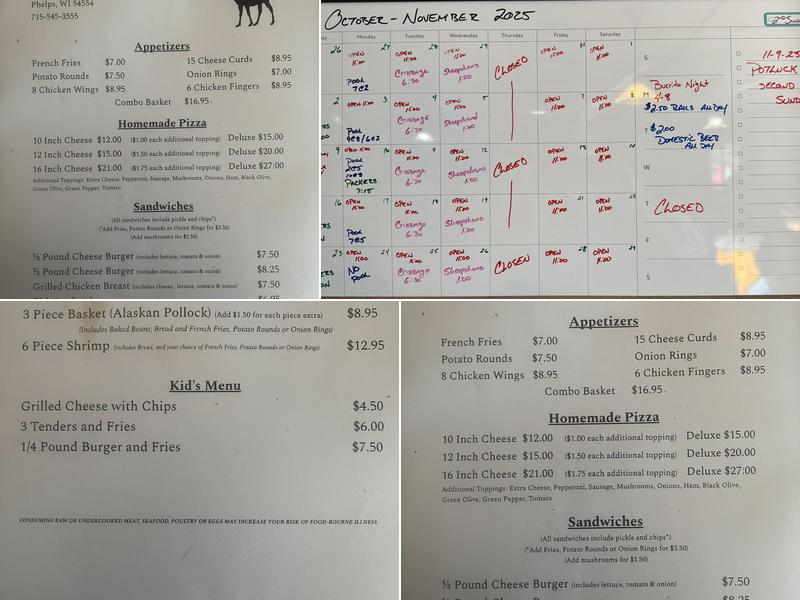 Phelps, WI 54554
715-545-3555
Appetizers
French Fries $7.00 15 Cheese Curds $8.95
Potato Rounds $7.50 Onion Rings $7.00
8 Chicken Wings $8.95 6 Chicken Fingers $8.95
Combo Basket $16.95.
Homemade Pizza
10 Inch Cheese $12.00 ($1.00 each additional topping) Deluxe $15.00
12 Inch Cheese $15.00 ($1.50 each additional topping) Deluxe $20.00
16 Inch Cheese $21.00 ($1.75 each additional topping) Deluxe $27:00
Additional Toppings: Extra Cheese, Pepperoni, Sausage, Mushrooms, Onions, Ham, Black Olive,
Green Olive, Green Pepper, Tomato
Sandwiches
(All sandwiches include pickle and chips*)
(*Add Fries, Potato Rounds or Onion Rings for $3.50)
(Add mushrooms for $1.50)
⅓ Pound Cheese Burger (includes lettuce, tomato & onion) $7.50
½ Pound Cheese Burger (includes lettuce, tomato & onion) $8.25
Grilled Chicken Breast (includes cheese, lettuce, tomato & onion) $7.50
October - November 2025
Monday Tuesday Wednesday Thursday Friday Saturday
26 27 28 29 31 1
OPEN 11:00 OPEN 11:00 OPEN 11:00 CLOSED OPEN 11:00 OPEN 11:00
POOL 7E2 Cribbage 6:30 Sheepshead 1:00
2 3 4 5 7 8
OPEN 11:00 OPEN OPEN OPEN 11:00 OPEN 11:00
POOL 4E8/6E2 Cribbage 6:30 Sheepshead 1:00
9 10 11 12 CLOSED
OPEN 11:00 OPEN 11:00 OPEN 11:00 OPEN 11:00 OPEN 11:00
POOL PACKERS 7:15 Cribbage 6:30 Sheepshead 1:00
16 17 18 19 21 22
OPEN 11:00 OPEN 11:00 OPEN 11:00 OPEN 11:00 OPEN 11:00
POOL 7E5 Cribbage 6:30 Sheepshead 1:00
23 24 25 26 28 29
OPEN 11:00 OPEN 11:00 OPEN 11:00 CLOSED OPEN 11:00 OPEN 11:00
NO POOL Cribbage 6:30 Sheepshead 1:00
S
M Burrito Night
4-8
$2.50 RAILS ALL DAY
T $2.00
DOMESTIC BEER
ALL DAY
W
T CLOSED
F
S
11-9-25
POTLUCK
SECOND
SUND
3 Piece Basket (Alaskan Pollock) (Add $1.50 for each piece extra) $8.95
(Includes Baked Beans; Bread and French Fries, Potato Rounds or Onion Rings)
6 Piece Shrimp (Includes Bread, and your choice of French Fries, Potato Rounds or Onion Rings) $12.95
Kid's Menu
Grilled Cheese with Chips $4.50
3 Tenders and Fries $6.00
1/4 Pound Burger and Fries $7.50
CONSUMING RAW OR UNDERCOOKED MEAT, SEAFOOD, POULTRY OR EGGS MAY INCREASE YOUR RISK OF FOOD-BOURNE ILLNESS
Appetizers
French Fries $7.00 15 Cheese Curds $8.95
Potato Rounds $7.50 Onion Rings $7.00
8 Chicken Wings $8.95 6 Chicken Fingers $8.95
Combo Basket $16.95.
Homemade Pizza
10 Inch Cheese $12.00 ($1.00 each additional topping) Deluxe $15.00
12 Inch Cheese $15.00 ($1.50 each additional topping) Deluxe $20.00
16 Inch Cheese $21.00 ($1.75 each additional topping) Deluxe $27:00
Additional Toppings: Extra Cheese, Pepperoni, Sausage, Mushrooms, Onions, Ham, Black Olive,
Green Olive, Green Pepper, Tomato
Sandwiches
(All sandwiches include pickle and chips*)
(*Add Fries, Potato Rounds or Onion Rings for $3.50)
(Add mushrooms for $1.50)
⅓ Pound Cheese Burger (includes lettuce, tomato & onion) $7.50